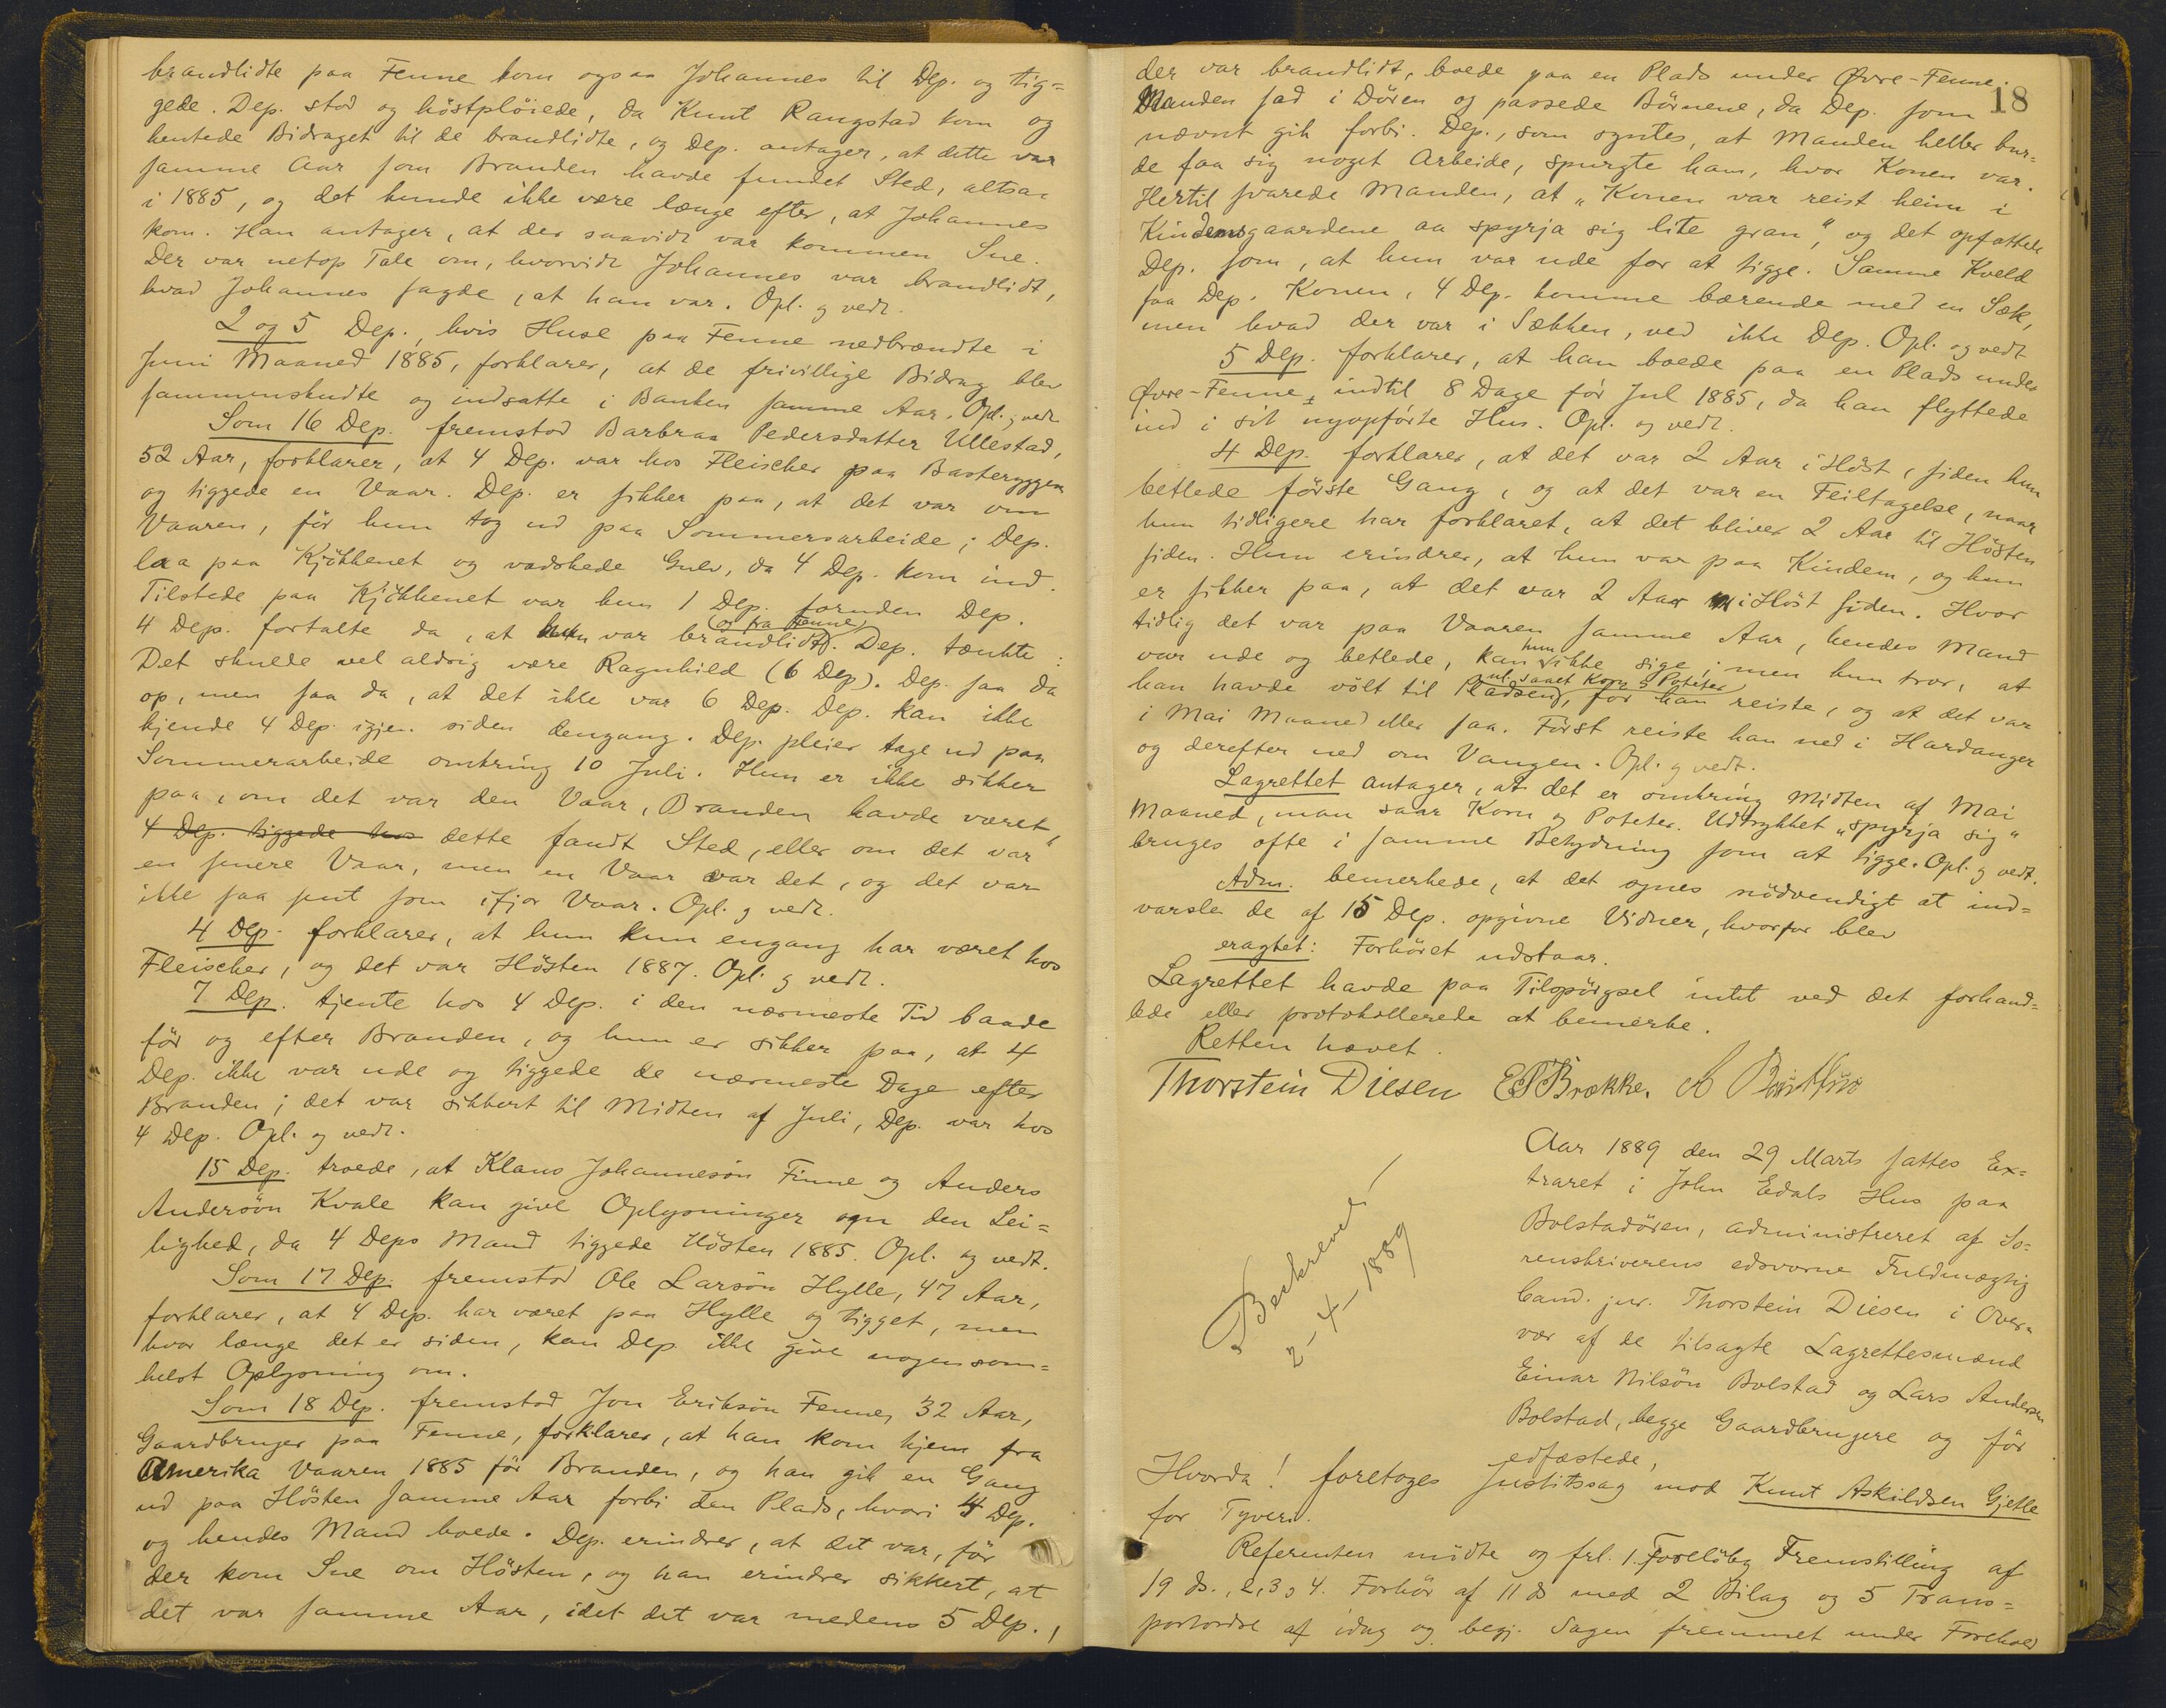 brandlidte paa Fenne kom ogsaa Johannes til Dep. og tig-
gede. Dep. stod og höstplöiede, da Knut Rangstad kom og
hentede Bidraget til de brandlidte, og Dep. antager, at dette var
samme Aar som Branden havde fundet Sted, altsaa
i 1885, og det kunde ikke være længe efter, at Johannes
kom. Han antager, at der saavidt var kommen Sne.
Der var netop Tale om, hvorvidt Johannes var brandlidt,
hvad Johannes sagde, at han var. Opl. g vedt.
2 og 5 Dep., hvis Huse paa Fenne nedbrændte i
Juni Maaned 1885, forklarer, at de frivillige Bidrag blev
sammenskudte og indsatte i Banken samme Aar. Opl. g vedt
Som 16 Dep. fremstod Barbraa Pedersdatter Ullestad,
52 Aar, forklarer, at 4 Dep. var hos Fleischer paa Basteryggen
og tiggede en Vaar. Dep. er sikker paa, at det var om
Vaaren, för hun tog ud paa Sommersarbeide; Dep.
laa paa Kjökkenet og vadskede Gulv, da 4 Dep. kom ind.
Tilstede paa Kjökkenet var kun 1 Dep. foruden Dep.
4 Dep. fortalte da, at hun var brandlidt (og fra Fenne). Dep. tænkte:
Det skulle vel aldrig være Ragnhild (6 Dep). Dep. saa da
op, men saa da, at det ikke var 6 Dep. Dep. kan ikke
kjende 4 Dep. igjen siden dengang. Dep. pleier tage ud paa
Sommerarbeide omkring 10 Juli. Hun er ikke sikker
paa, om det var den Vaar, Branden havde været,
4 Dep. tiggede hos dette fandt Sted, eller om det var
en senere Vaar, men en Vaar var det, og det var
ikke saa sent som ifjor Vaar. Opl. g vedt.
4 Dep. forklarer, at hun kun engang har været hos
Fleischer, og det var Hösten 1887. Opl. g vedt.
7 Dep. tjente hos 4 Dep. i den nærmeste Tid baade
för og efter Branden, og hun er sikker paa, at 4
Dep. ikke var ude og tiggede de nærmeste Dage efter
Branden; det var sikkert til Midten af Juli, Dep. var hos
4 Dep. Opl. og vedt.
15 Dep. troede, at Klaus Johannesön Finne og Anders
Andersön Kvale kan give Oplysninger om den Lei-
lighed, da 4 Deps Mand tiggede Hösten 1885. Opl. og vedt.
Som 17 Dep. fremstod Ole Larsön Hylle, 47 Aar,
forklarer, at 4 Dep. har været paa Hylle og tigget, men
hvor længe det er siden, kan Dep. ikke give nogensom-
helst Oplysning om.
Som 18 Dep. fremstod Jon Eriksön Fenne, 32 Aar,
Gaardbruger paa Fenne, forklarer, at han kom hjem fra
Amerika Vaaren 1885 för Branden, og han gik en Gang
ud paa Hösten samme Aar forbi den Plads, hvori 4 Dep.
og hendes Mand boede. Dep. erindrer, at det var, för
der kom Sne om Hösten, og han erindrer sikkert, at
det var samme Aar, idet det var medens 5 Dep.,
18
der var brandlidt, boede paa en Plads under Övre-Fenne.
Manden sad i Dören og passede Börnene, da Dep. som
nævnt gik forbi. Dep., som syntes, at Manden heller bur-
de faa sig noget Arbeide, spurgte ham, hvor Konen var.
Hertil svarede Manden, at "Konen var reist heim i
Kindemsgaardene aa spyrja sig lite gran", og det opfattede
Dep. som, at hun var ude for at tigge. Samme Kveld
saa Dep. Konen, 4 Dep. komme bærende med en Sæk,
men hvad der var i Sækken, ved ikke Dep. Opl. og vedt
5 Dep. forklarer, at han boede paa en Plads under
Övre-Fenne indtil 8 Dage för Jul 1885, da han flyttede
ind i sit nyopförte Hus. Opl. og vedt.
4 Dep. forklarer, at det var 2 Aar i Höst, siden hun
betlede förste Gang, og at det var en Feiltagelse, naar
hun tidligere har forklaret, at det bliver 2 Aar til Hösten
siden. Hun erindrer, at hun var paa Kindem, og hun
er sikker paa, at det var 2 Aar i Höst siden. Hvor
tidlig det var paa Vaaren samme Aar, hendes Mand
var ude og betlede, kan hun ikke sige; men hun tror, at
han havde völt til Pladsen, nl. saaet Korn g Poteter, för han reiste, og at det var
i Mai Maaned eller saa. Först reiste han ned i Hardanger
og derefter ned om Vangen. Opl. g vedt.
Lagrettet antager, at det er omkring Midten af Mai
Maaned, man saar Korn og Poteter. Udtrykket "spyrja sig"
bruges ofte i samme Betydning som at tigge. Opl. g vedt.
Adm. bemerkede, at det synes nödvendigt at ind-
varsle de af 15 Dep. opgivne Vidner, hvorfor blev
eragtet: Forhöret udstaar.
Lagrettet havde paa Tilspörgsel intet ved det forhand-
lede eller protokollerede at bemerke.
Retten hævet.
Thorstein Diesen E P Brække.
Beskrevet
2-4-1889
Aar 1889 den 29 Marts sattes Ex-
traret i John Edals Hus paa
Bolstadören, administreret af So-
renskriverens edsvorne Fuldmægtig
Cand. jur. Thorstein Diesen i Over-
vær af de tilsagte Lagrettesmænd
Einar Nilsön Bolstad og Lars Andersen
Bolstad, begge Gaardbrugere og för
edfæstede,
Hvorda! foretoges Justitssag mod Knut Askildsen Gjelle
for Tyveri.
Referenten mödte og frl. 1. Forelöbig Fremstilling af
19 ds., 2, 3 g 4. Forhör af 11 ds med 2 Bilag og 5 Trans-
portordre af idag og begj. Sagen fremmet under Forehold